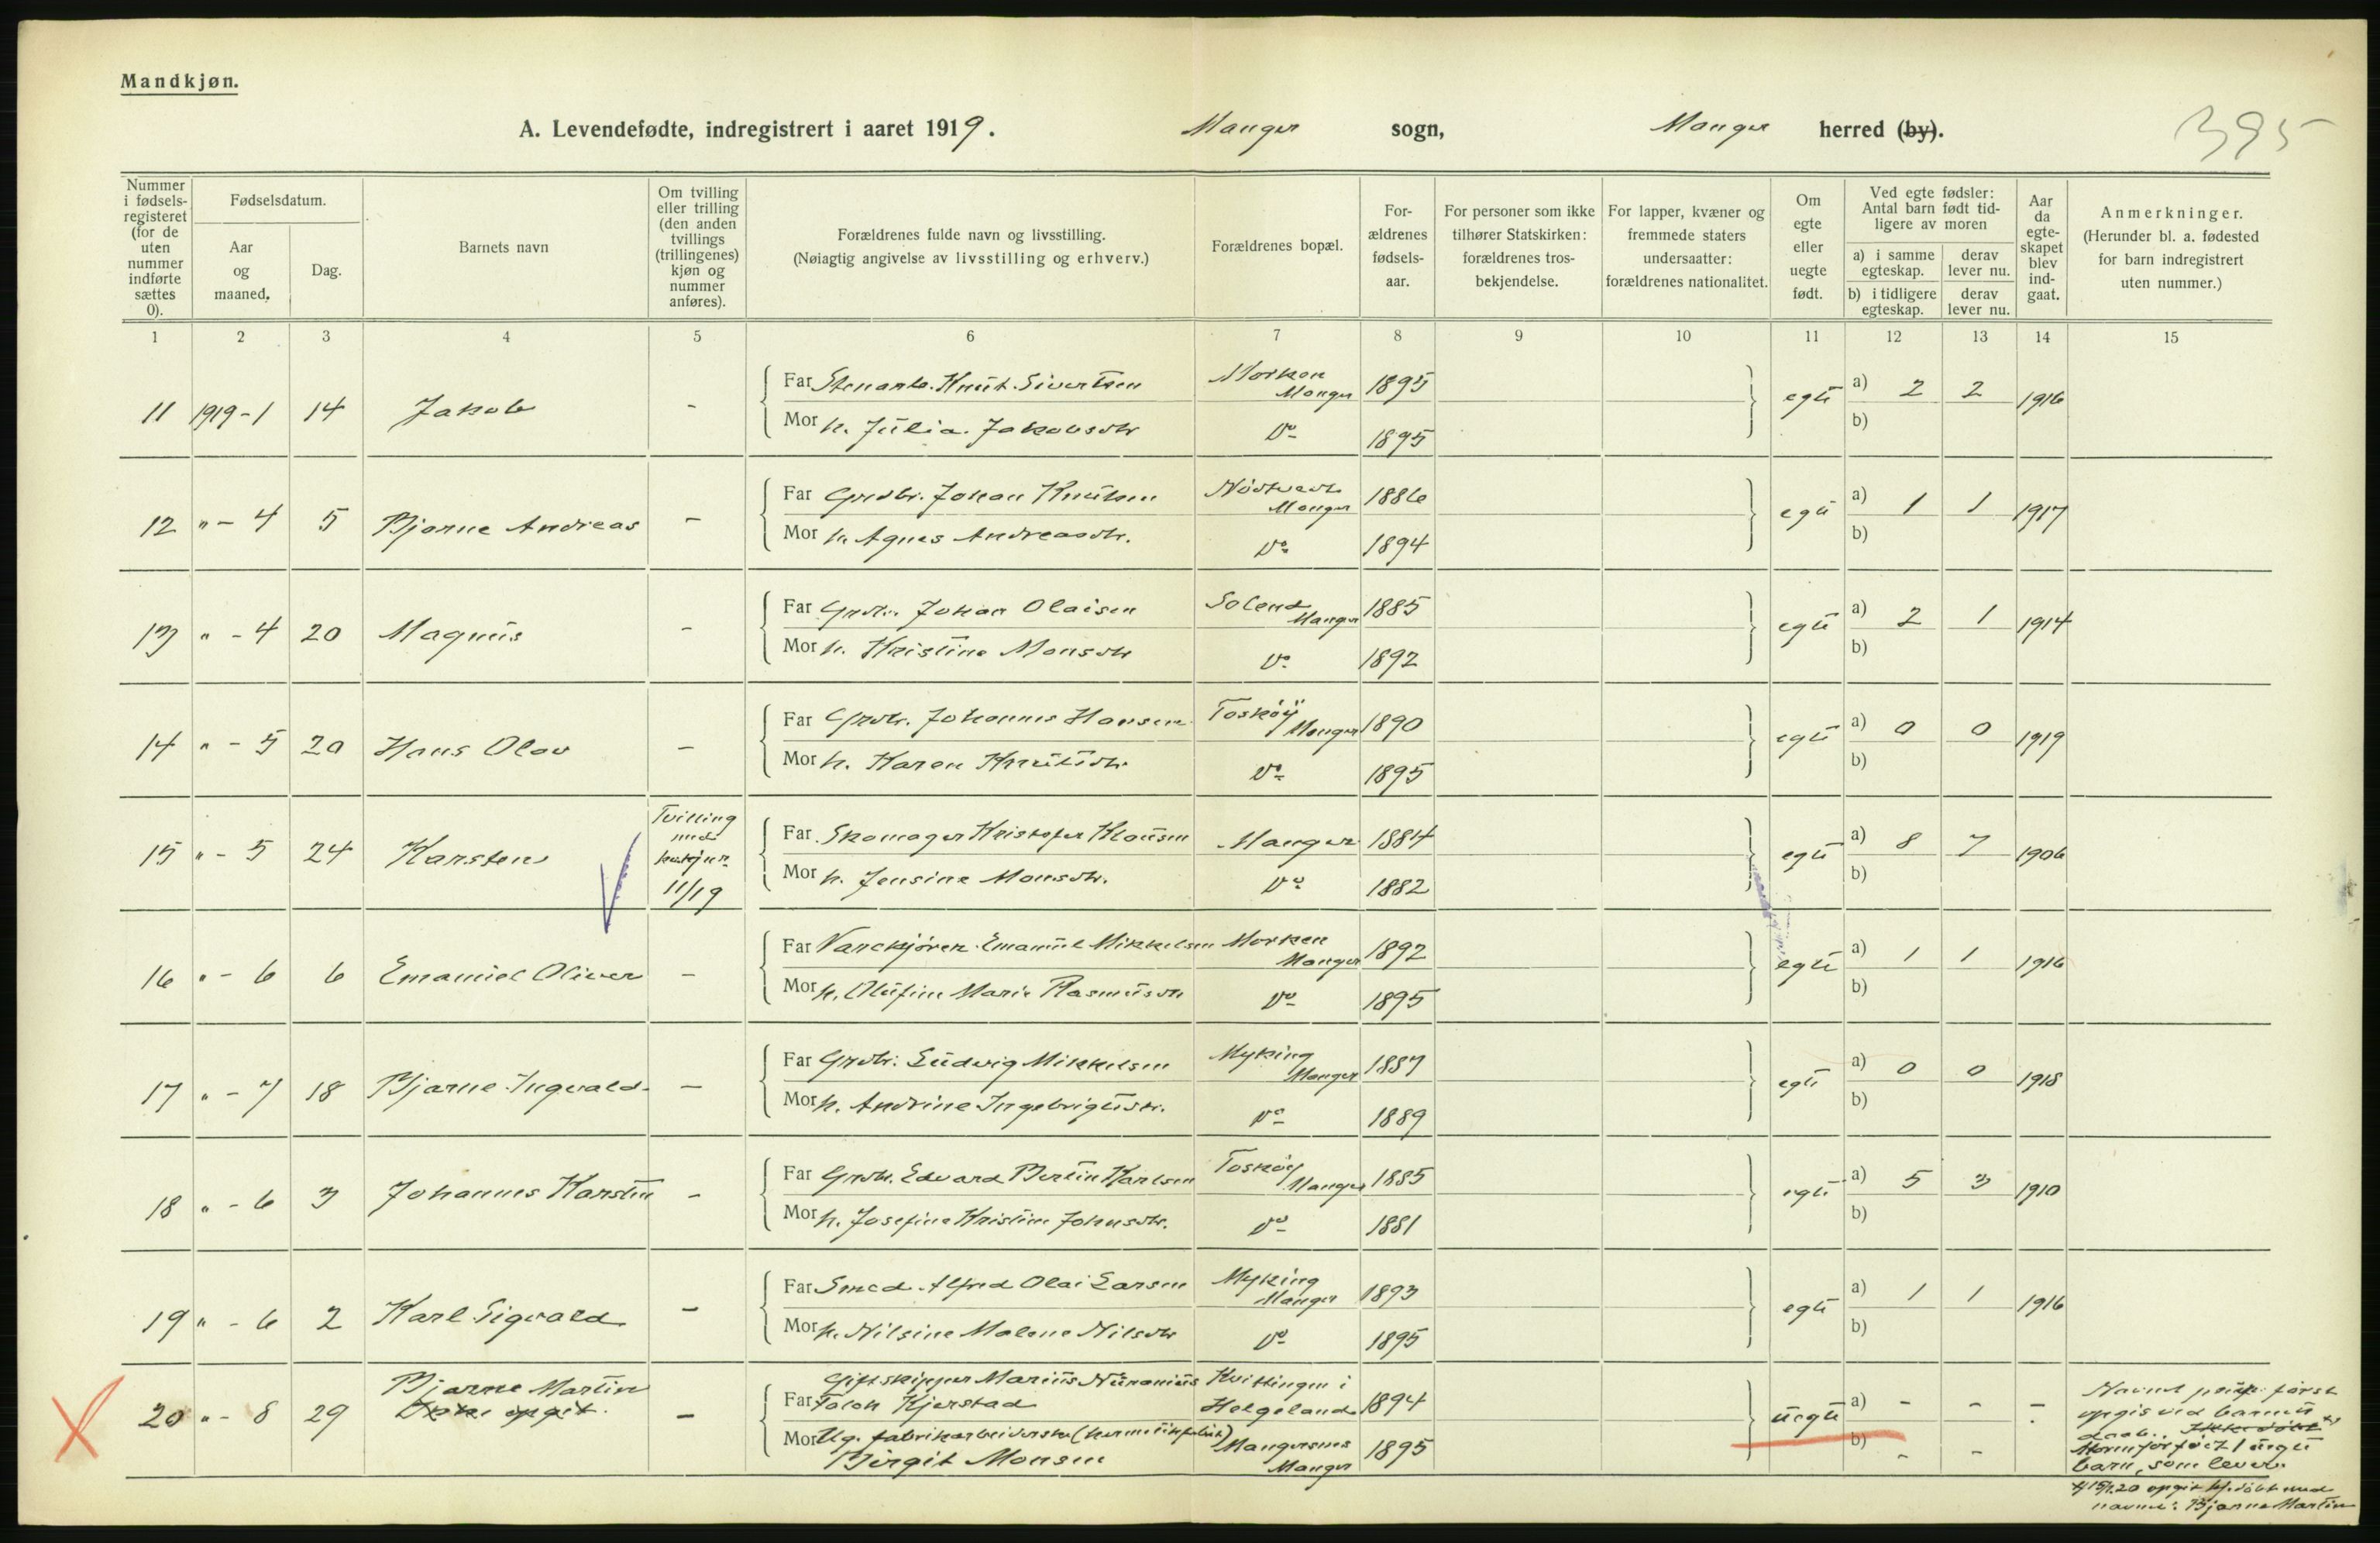 Mandkjøn.
A. Levendefødte, indregistrert i aaret 1919. Manger sogn, Manger herred (by).
395
Nummer i fødsels-registeret (for de uten nummer indførte sættes 0).
Fødselsdatum.
Aar og maaned.
Dag.
Barnets navn
Om tvilling eller trilling (den anden tvillings (trillingenes) kjøn og nummer anføres).
Forældrenes fulde navn og livsstilling.
(Nøiagtig angivelse av livsstilling og erhverv.)
Forældrenes bopæl.
For-ældrenes fødsels-aar.
For personer som ikke tilhører Statskirken: forældrenes tros-bekjendelse.
For lapper, kvæner og fremmede staters undersaatter: forældrenes nationalitet.
Om egte eller uegte født.
Ved egte fødsler: Antal barn født tid-ligere av moren
a) i samme egteskap. derav lever nu.
b) i tidligere egteskap. derav lever nu.
Aar da egte-skapet blev ind-gaat.
Anmerkninger.
(Herunder bl. a. fødested for barn indregistrert uten nummer.)
1 2 3 4 5 6 7 8 9 10 11 12 13 14 15
Far Stenarb. Knut Sivertsen Morken Manger 1895
11 1919-1 14 Jakob - egte a) 2 2 1916
Mor h. Julia Jakobsdtr Do 1895 b)
Far Grdbr. Johan Knutsen Manger 1886
12 " - 4 5 Bjarne Andreas - egte a) 1 1 1917
Mor h. Agnes Andreasdtr. Do 1894 b)
Far Grdbr. Johan Olaisen Solend Manger 1885
13 " - 4 20 Magnus - egte a) 2 1 1914
Mor h. Kristine Monsdtr Do 1892 b)
Far Grdbr. Johannes Hansen Toskøy Manger 1890
14 " - 5 20 Hans Olav - egte a) 0 0 1919
Mor h. Karen Knutsdtr. Do 1895 b)
Far Skomager Kristofer Klausen Manger 1884
15 " - 5 24 Karsten Tvilling med kvkjøn 11/19 egte a) 8 7 1906
Mor h. Jensine Monsdtr. Do 1882 b)
Far Emanuel Mikkelsen Morken Manger 1892
16 " - 6 6 Emanuel Oliver - egte a) 1 1 1916
Mor h. Olufine Marie Rasmusdtr Do 1895 b)
Far Grdbr. Ludvig Mikkelsen Myking Manger 1887
17 " - 7 18 Bjarne Ingvald - egte a) 0 0 1918
Mor h. Andrine Ingebrigtsdtr. Do 1889 b)
Far Grdbr. Edvard Bertin Karlsen Toskøy Manger 1885
18 " - 6 3 Johannes Karsten - egte a) 5 3 1910
Mor h. Josefine Kristine Johnsdtr. Do 1881 b)
Far Smed Alfred Olai Larsen Myking Manger 1893
19 " - 6 2 Karl Sigvald - egte a) 1 1 1916
Mor h. Nilsine Malene Nilsdtr Do 1895 b)
Gift skipper Marius Kvittingen i
Far Falch Kjerstad Helgeland 1894
20 " - 8 29 Bjarne Martin Ikke opgit. - uegte a) - - -
Mor Ug. fabrikarbeiderske (hermetikfabrik) Mangersnes 1895 b) - -
Birgit Monsen Manger
Navnet først
opgis ved barnets
daab. Ikke døbt
Moren før født 1 uegte
barn, som lever.
opgit døbt med
navnet: Bjarne Martin